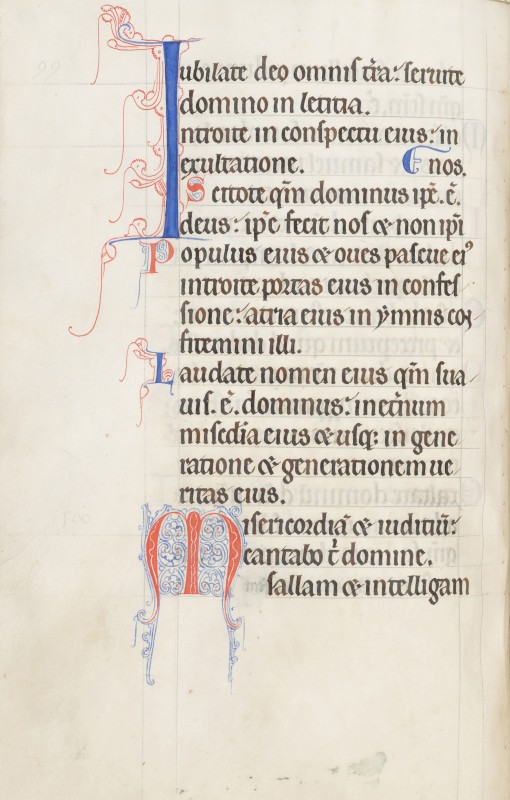 Iubilate deo omnis t̄ra: seruite
domino in letitia.
Introite in conspectu eius: in
exultatione. & nos.
Scitote qm̄ dominus ip̄e. ē.
deus: ip̄e fecit nos & non ip̄i
Populus eius & oues pascue ei⁹
introite portas eius in confes
sione: atria eius in ẏmnis con
fitemini illi.
Laudate nomen eius qm̄ sua
uis. ē. dominus: in et̄num
mise͞dia eius & usq; in gene
ratione & generationem ue
ritas eius.
Misericordiā & iudiciū:
cantabo t̄ domine.
sallam & intelligam